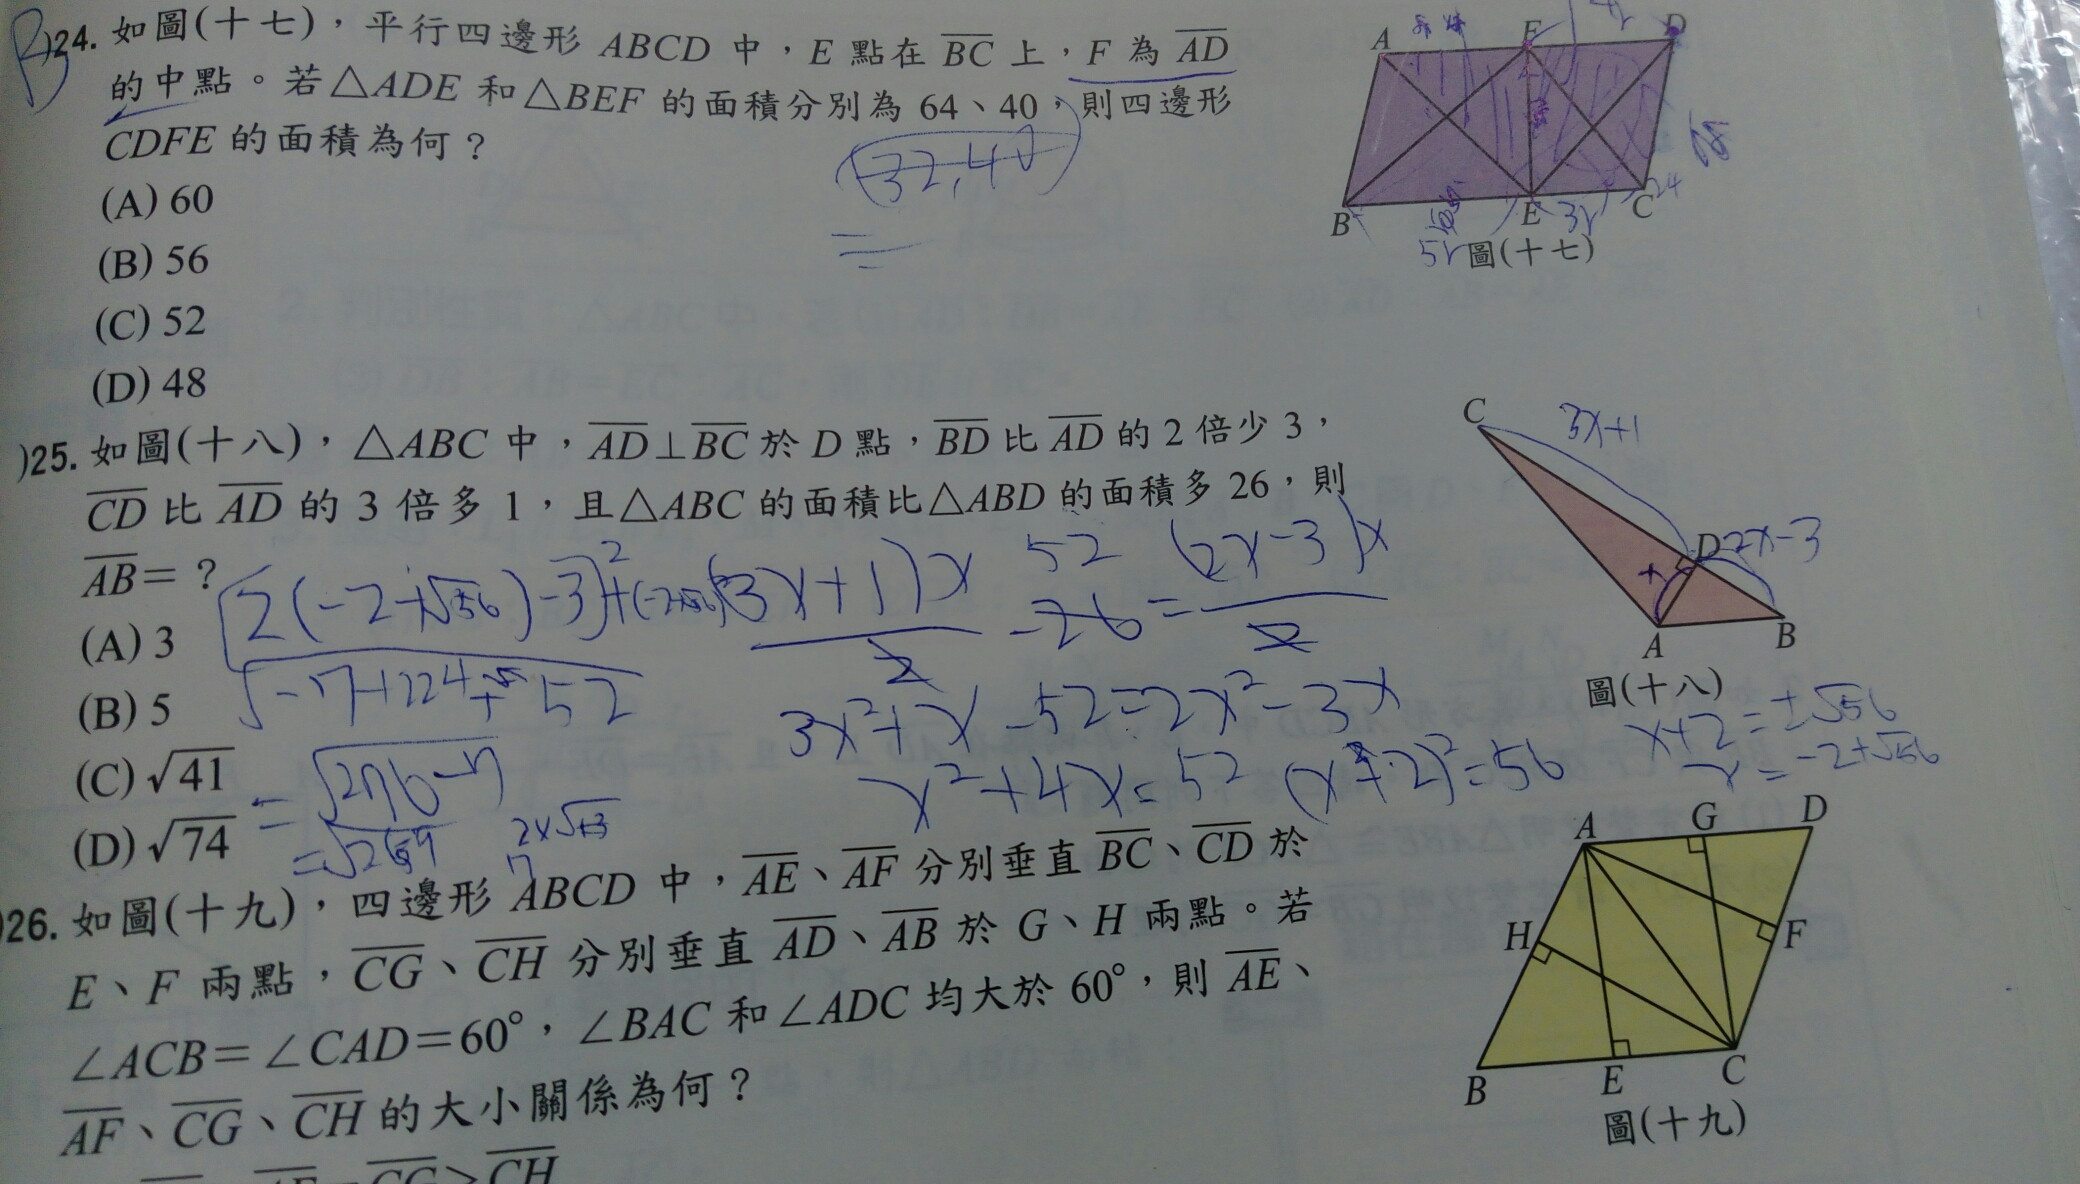 24. 如圖(十七)，平行四邊形 ABCD 中，E 點在 BC 上，F 為 AD
的中點。若△ADE 和△BEF 的面積分別為 64、40，則四邊形
CDFE 的面積為何？
(32,40)
(A) 60
(B) 56
(C) 52
(D) 48
A
F
D
B
E
C
5r
3r
24
圖(十七)
)25. 如圖(十八)，△ABC 中，AD⊥BC 於 D 點，BD 比 AD 的 2 倍少 3，
CD 比 AD 的 3 倍多 1，且△ABC 的面積比△ABD 的面積多 26，則
AB＝？
(A) 3
(B) 5
(C) √41
(D) √74
(3x+1)x/2 -26 = (2x-3)x/2
52
3x²+x-52=2x²-3x
x²+4x=52 (x+2)²=56
x+2=±√56
x=-2+√56
=√276-7
=√269
C
3x+1
D
2x-3
x
A
B
圖(十八)
)26. 如圖(十九)，四邊形 ABCD 中，AE、AF 分別垂直 BC、CD 於
E、F 兩點，CG、CH 分別垂直 AD、AB 於 G、H 兩點。若
∠ACB＝∠CAD＝60°，∠BAC 和∠ADC 均大於 60°，則 AE、
AF、CG、CH 的大小關係為何？
A
G
D
H
F
B
E
C
圖(十九)